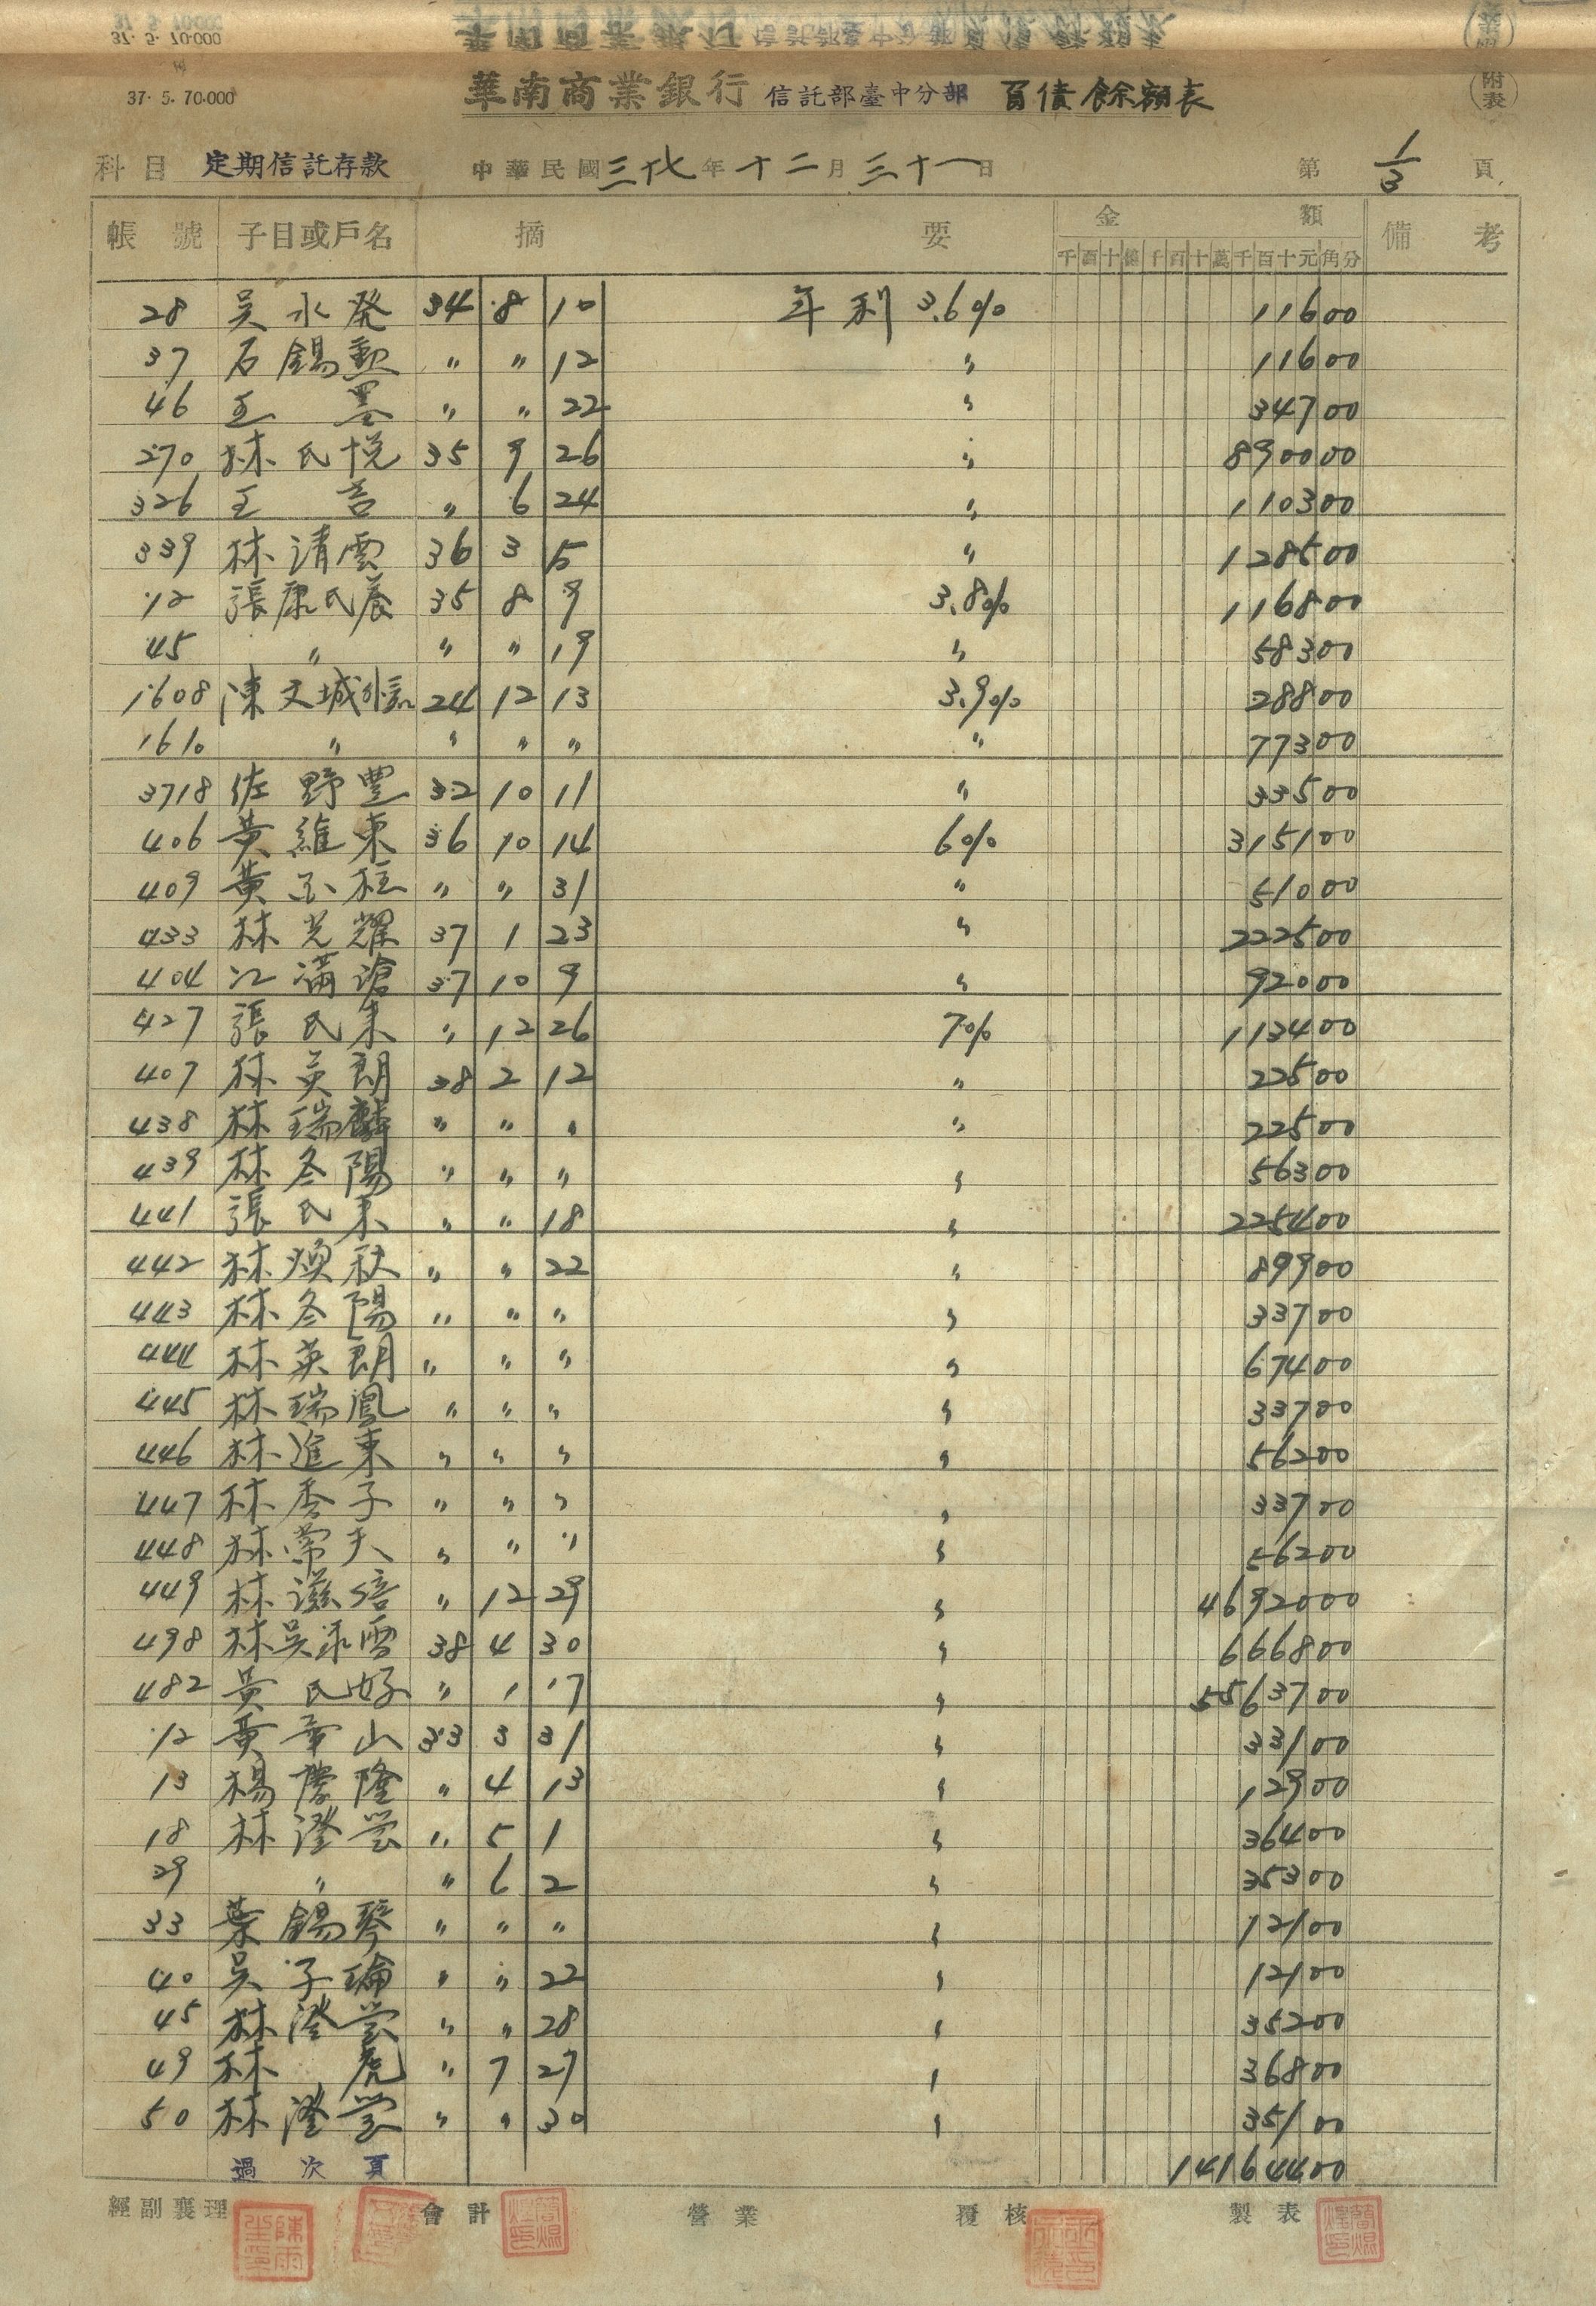 37. 5. 70.000
華南商業銀行 信託部臺中分部 負債餘額表
附表
科目 定期信託存款 中華民國三十七年十二月三十一日 第 1/3 頁
帳號 子目或戶名 摘要 金額 備考
千百十億千百十萬千百十元角分
28 吳永発 34 8 10 年利 3.6% 11600
37 石錫勳 〃 〃 12 〃 11600
46 王墨 〃 〃 22 〃 34700
270 林氏悅 35 9 26 〃 890000
326 王吉 〃 6 24 〃 110300
339 林清雲 36 3 15 〃 128500
12 張康氏養 35 8 9 3.8% 116800
45 〃 〃 〃 19 〃 58300
1608 陳文城 24 12 13 3.9% 28800
1610 〃 〃 〃 〃 〃 77300
3718 佐野豊 32 10 11 〃 33500
406 黃維東 36 10 14 6% 315100
409 黃玉柱 〃 〃 31 〃 51000
433 林光耀 37 1 23 〃 222500
404 江滿滄 37 10 9 〃 92000
427 張氏朱 〃 12 26 7% 113400
407 林英朗 38 2 12 〃 22500
438 林瑞麟 〃 〃 〃 〃 22500
439 林冬陽 〃 〃 〃 〃 56300
441 張氏朱 〃 〃 18 〃 225400
442 林煥秋 〃 〃 22 〃 89900
443 林冬陽 〃 〃 〃 〃 33700
444 林英朗 〃 〃 〃 〃 67400
445 林瑞鳳 〃 〃 〃 〃 33700
446 林進東 〃 〃 〃 〃 56200
447 林香子 〃 〃 〃 〃 33700
448 林常夫 〃 〃 〃 〃 56200
449 林滋培 〃 12 29 〃 4692000
498 林吳氷雪 38 4 30 〃 666800
482 黃氏好 〃 1 17 〃 5563700
12 黃章山 33 3 31 〃 33100
13 楊慶隆 〃 4 13 〃 12900
18 林澄瑩 〃 5 1 〃 36400
29 〃 〃 6 2 〃 35300
33 葉錫琴 〃 〃 〃 〃 12100
40 吳子瑜 〃 〃 22 〃 12100
45 林澄瑩 〃 〃 28 〃 35200
49 林虎 〃 7 27 〃 36800
50 林澄瑩 〃 〃 30 〃 35100
過次頁 14164400
經副襄理 會計 營業 覆核 製表